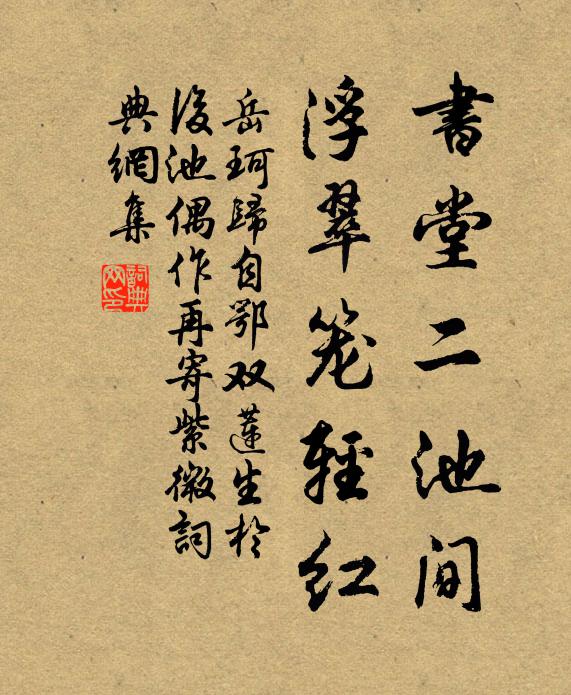 書堂二池间
浮翠笼輕红
岳珂歸自鄂双蓮生於
後池偶作再寄紫微詞
典網集
詞典网印